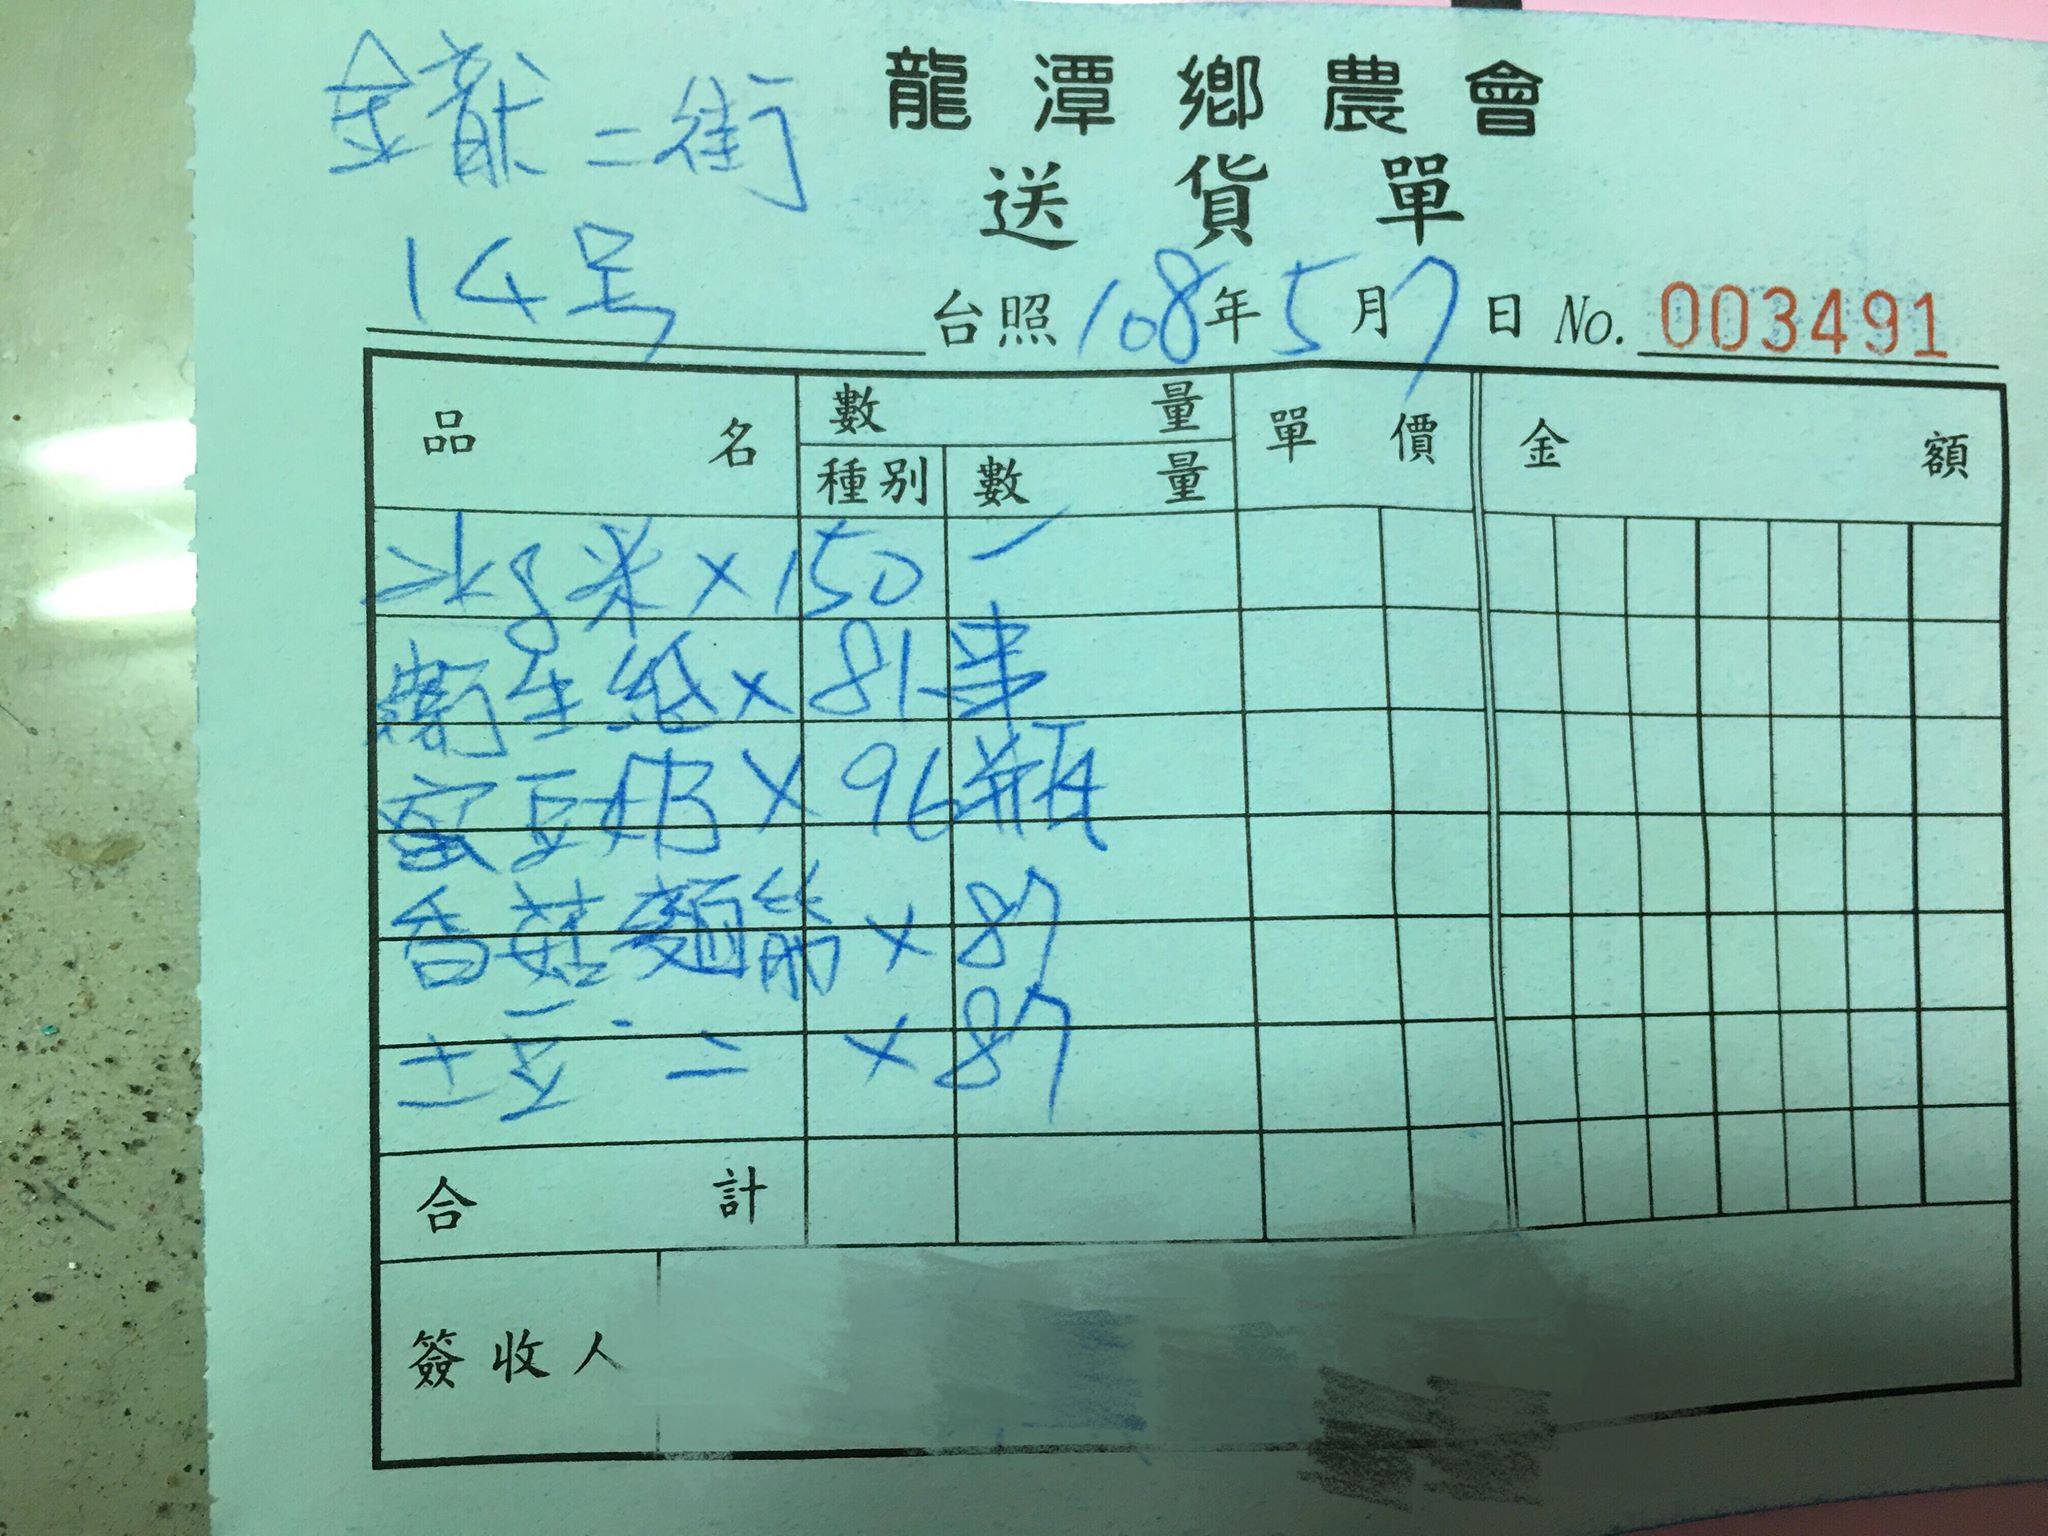 龍潭鄉農會
送貨單
金龍二街
14号
台照 108年5月7日 No. 003491
品名 數量 單價 金額
種別 數量
米×150
衛生紙×81串
蜜豆奶×96瓶
香菇麵筋×87
土豆 〃 ×87
合計
簽收人